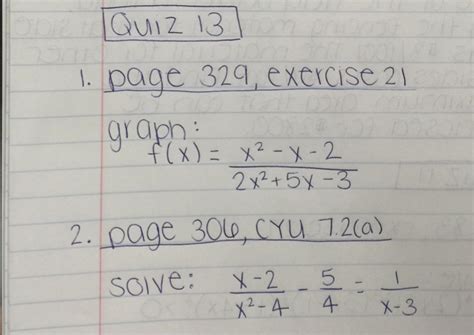 QUIZ 13
1. page 329, exercise 21
graph:
f(x) = x² - x - 2 / 2x² + 5x - 3
2. page 306, CYU 7.2(a)
solve: x - 2 / x² - 4 - 5 / 4 = 1 / x - 3